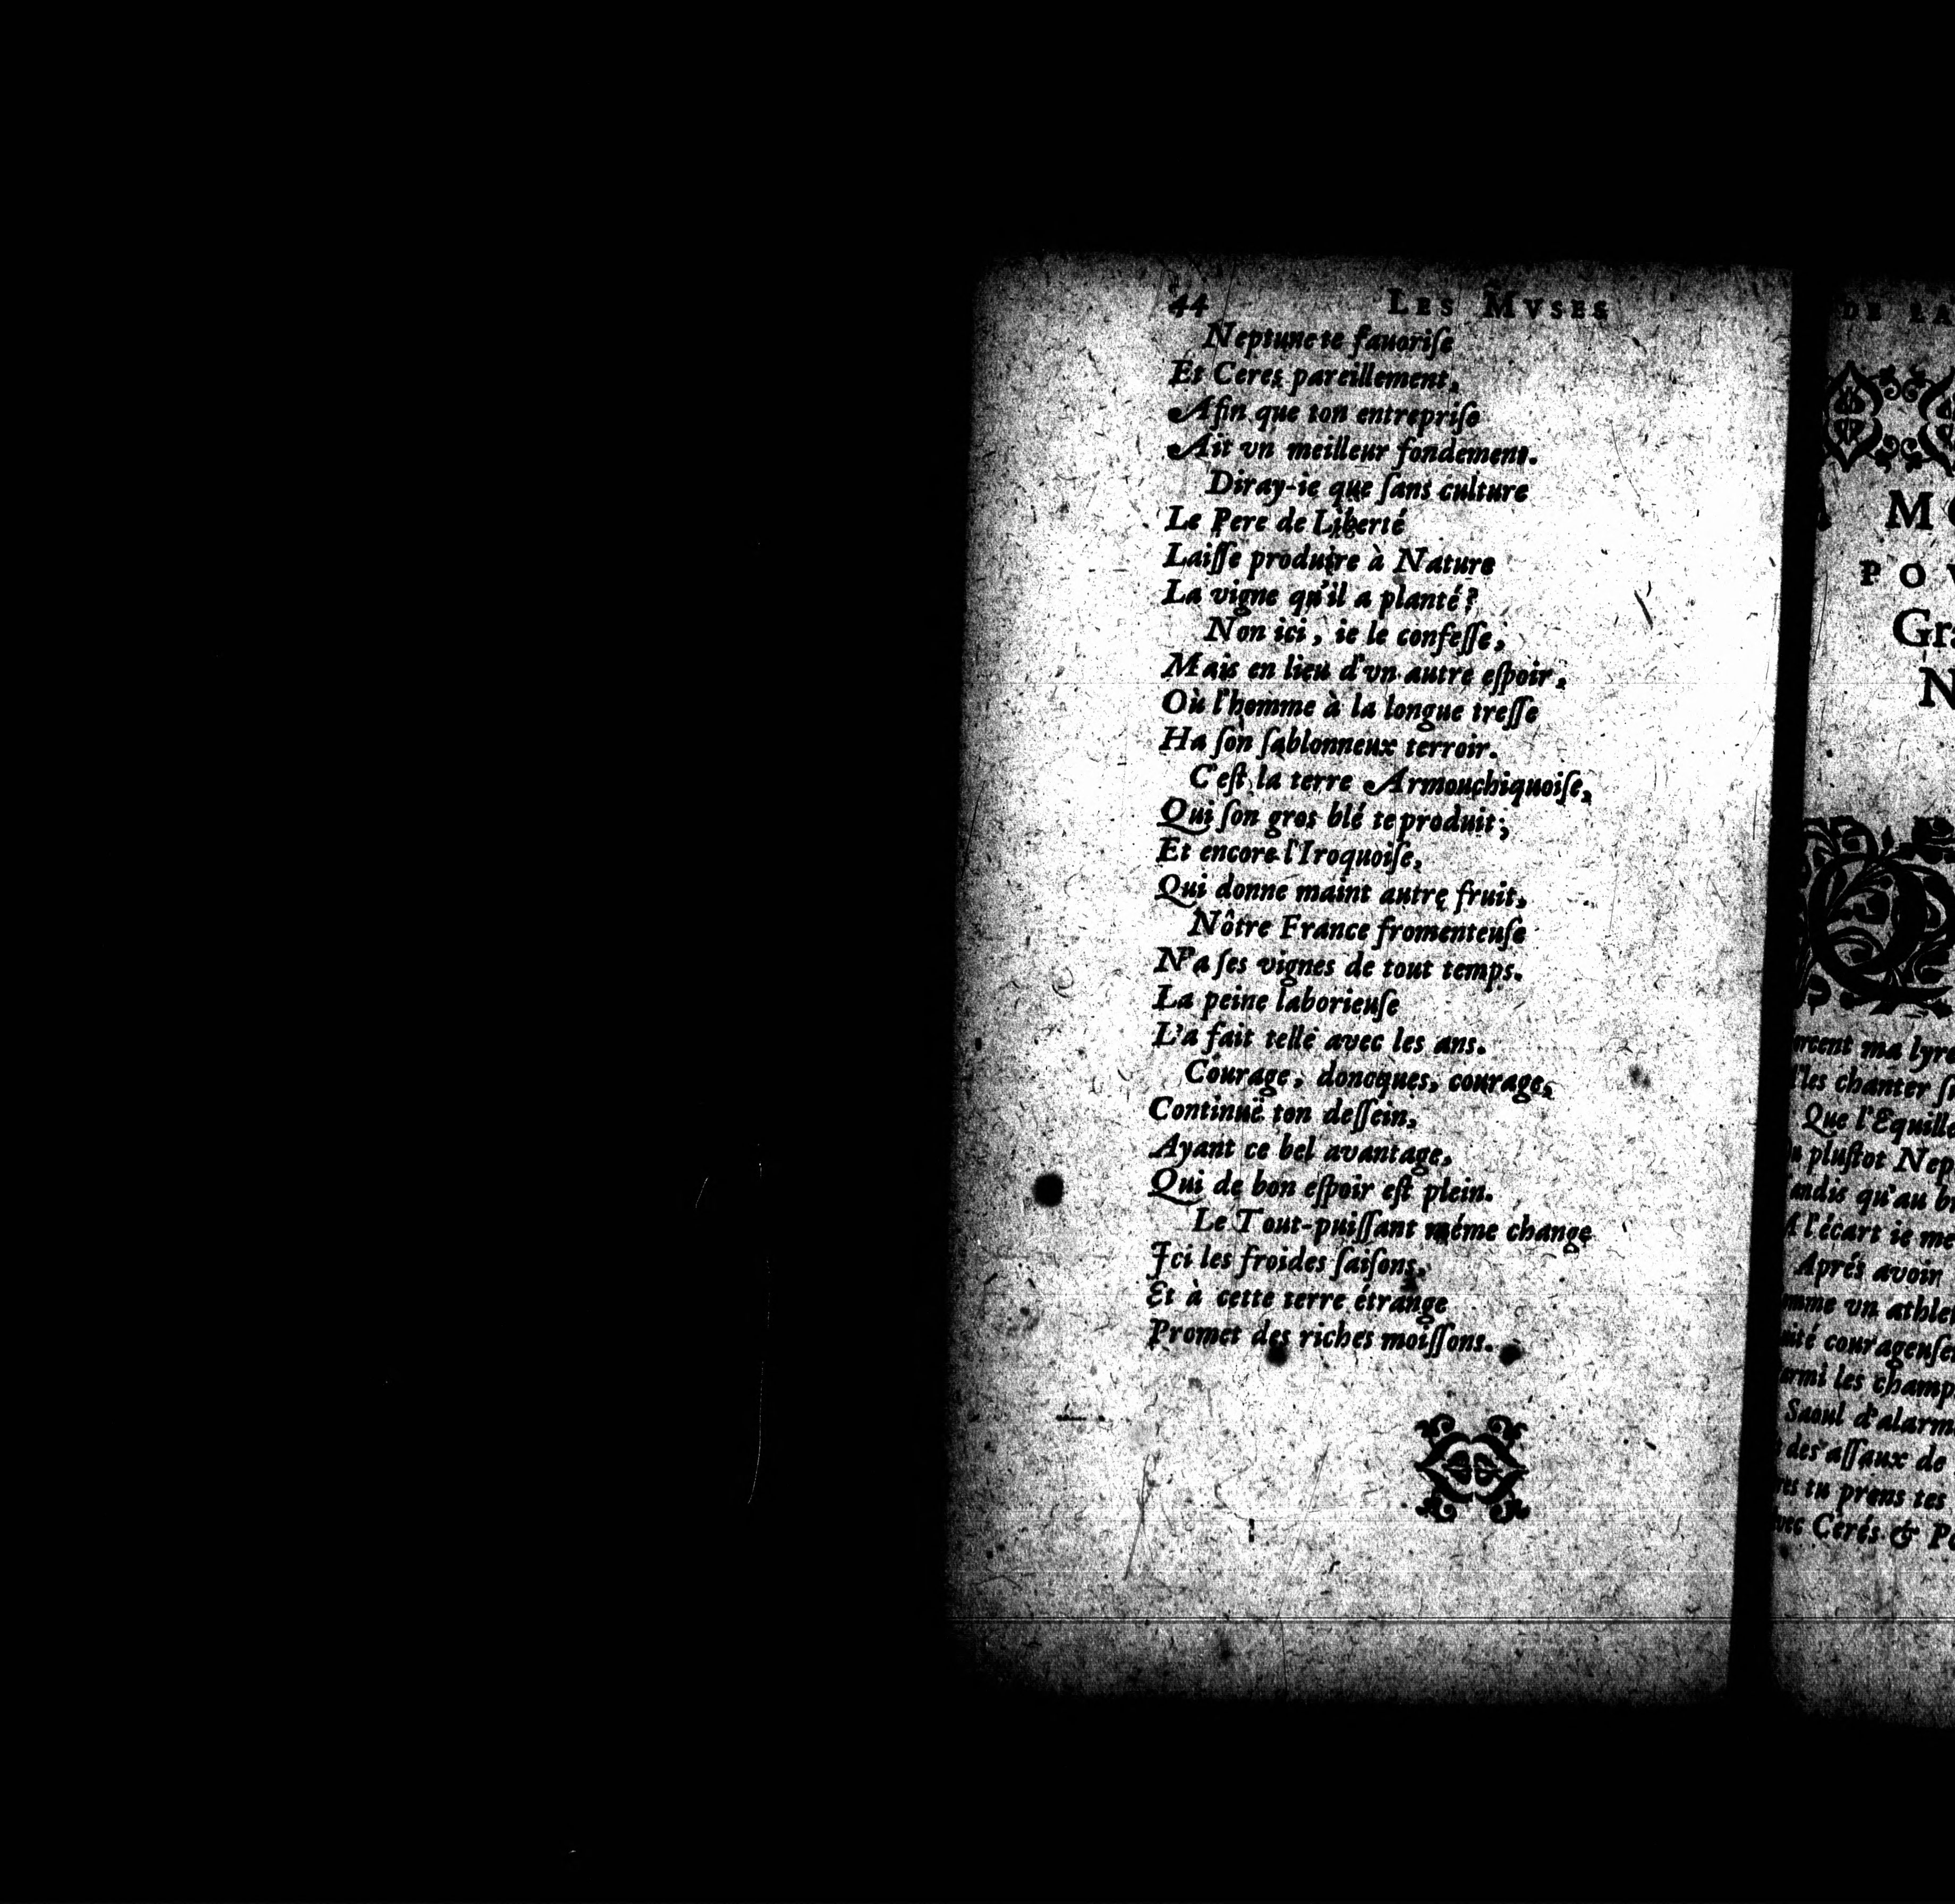 44 LES MVSES
Neptune te fauoriſe
Et Ceres pareillement,
Afin que ton entrepriſe
Ait vn meilleur fondement.
Diray-ie que ſans culture
Le Pere de Liberté
Laiſſe produire à Nature
La vigne qu'il a planté?
Non ici, ie le confeſſe,
Mais en lieu d'vn autre eſpoir,
Où l'homme à la longue treſſe
Ha ſon ſablonneux terroir.
C'eſt la terre Armouchiquoiſe,
Qui ſon gros blé te produit;
Et encore l'Iroquoiſe,
Qui donne maint autre fruit,
Nôtre France fromenteuſe
N'a ſes vignes de tout temps.
La peine laborieuſe
L'a fait telle avec les ans.
Courage, doncques, courage,
Continuë ton deſſein,
Ayant ce bel avantage,
Qui de bon eſpoir eſt plein.
Le Tout-puiſſant méme change
Ici les froides ſaiſons,
Et à cette terre étrange
Promet des riches moiſſons.
DE LA
ma lyre
chanter
Que l'Equille
pluſtot Nep
qu'au b
l'écart ie me
Aprés avoir
vn athlet
courageuſe
les champ
Saoul d'alarm
des aſſaux de
tu prens tes
Cerés & P